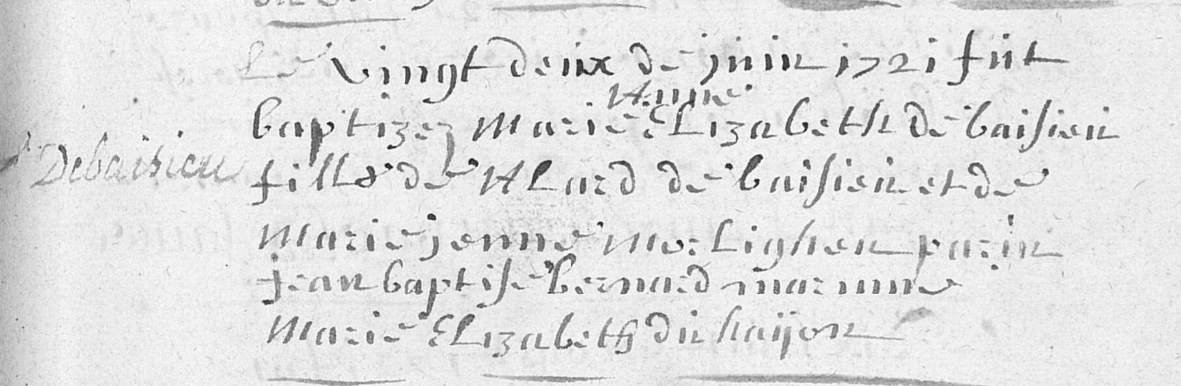 Le vingt deux de juin 1721 fut
Anne
baptizez Marie Elizabeth de baisieu
Debaisieu
fille de Alard de baisieu et de
Marie jenne Morlighen parin
jean baptise bernard marinne
Marie Elizabeth du haijon